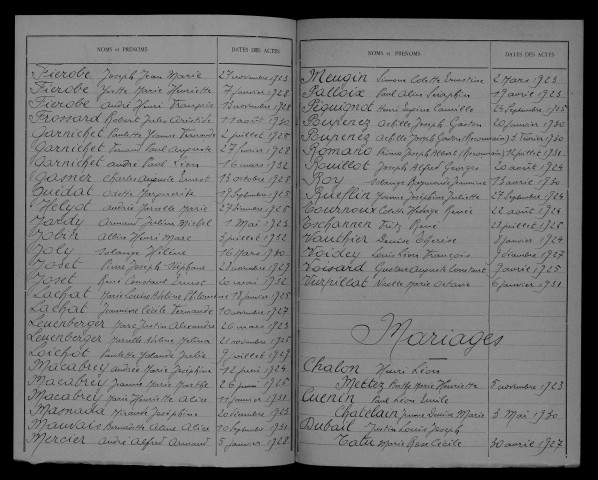 NOMS et PRÉNOMS DATES DES ACTES
Fierobe Joseph Jean Marie 27 novembre 1923
Fierobe Yvette Marie Henriette 7 janvier 1928
Fierobe André Henri François novembre 1928
Frossard Robert Jules Aristide 11 août 1930
Garnichet Paulette Yvonne Fernande 2 juillet 1925
Garnichet Fernand Paul Auguste 27 février 1928
Garnichet André Paul Léon 16 mars 1932
Gasner Charles Auguste Ernest 13 octobre 1928
Guidat Odette Marguerite 1925
Helyot Andrée Marie 27 1925
Jardy Armand Julien Michel 1 Mai 1923
Jobin Albin Henri Marc 5 juillet 1912
Joly Solange Hélène 16 mars 1930
Joset Pierre Joseph Stéphane 23 novembre 1927
Joset René Constant Ernest 20 mai 1932
Lachat Marie Louise Philomène 18 février 1925
Lachat Jeannine Cécile Fernande 10 novembre 1927
Leuenberger Marc Justin Alexandre 26 mars 1923
Leuenberger Marcelle 21 novembre 1925
Loichot Paulette Yolande Julia 9 juillet 1927
Macabrey Andrée Marie Joséphine 12 juin 1924
Macabrey Jeanne Marie Marthe 26 juin 1925
Macabrey Marie Henriette Alice 11 janvier 1931
Masnada Joséphine 20 décembre 1923
Mauvais Bernadette Aline Alice 10 septembre 1931
Mercier André Alfred Armand 5 janvier 1928
NOMS et PRÉNOMS DATES DES ACTES
Meugin Simone Colette Ernestine 2 Mars 1923
Salloix Paul Alix Séraphin 17 avril 1923
Pequignot Henri Eugène Camille 23 Septembre 1925
Achille Joseph Gaston 20 janvier 1930
Achille Joseph Gaston 3 février 1930
Romano Joseph Albert juillet 1931
Rouillot Joseph Alfred Georges 20 août 1924
Roy Solange Raymonde Jeannine 13 avril 1930
Rueflin Jeanne Joséphine Juliette 27 Septembre 1924
Tournoux Colette Renée 22 août 1924
Tschannen Fritz René 23 juillet 1925
Vauthier Denise 8 janvier 1924
Voidey Louis Léon François 9 décembre 1927
Voisard Gustave Auguste Constant 9 avril 1925
Vurpillat Nicolle Marie Octavie 6 janvier 1931
Mariages
Chalon Henri Léon
Mettez Berthe Marie Henriette 5 novembre 1923
Cuenin Paul Léon Emile
Chatelain Jeanne Denise Marie 3 Mai 1930
Dubail Justin Louis Joseph
Tatu Marie Rose Cécile 30 avril 1927